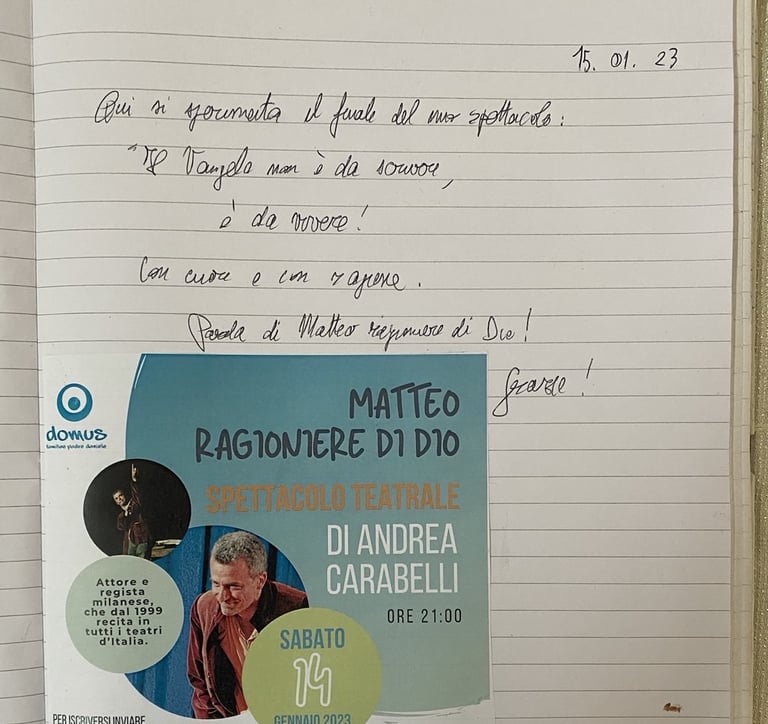 15. 01. 23
Qui si sperimenta il finale del mio spettacolo:
"Il Vangelo non è da scrivere,
è da vivere!
Con cuore e con ragione.
Parola di Matteo ragioniere di Dio!
Grazie!
domus
MATTEO
RAGIONIERE DI DIO
SPETTACOLO TEATRALE
DI ANDREA
CARABELLI
ORE 21:00
Attore e
regista
milanese,
che dal 1999
recita in
tutti i teatri
d'Italia.
SABATO
14
GENNAIO 2023
PER ISCRIVERSI INVIARE